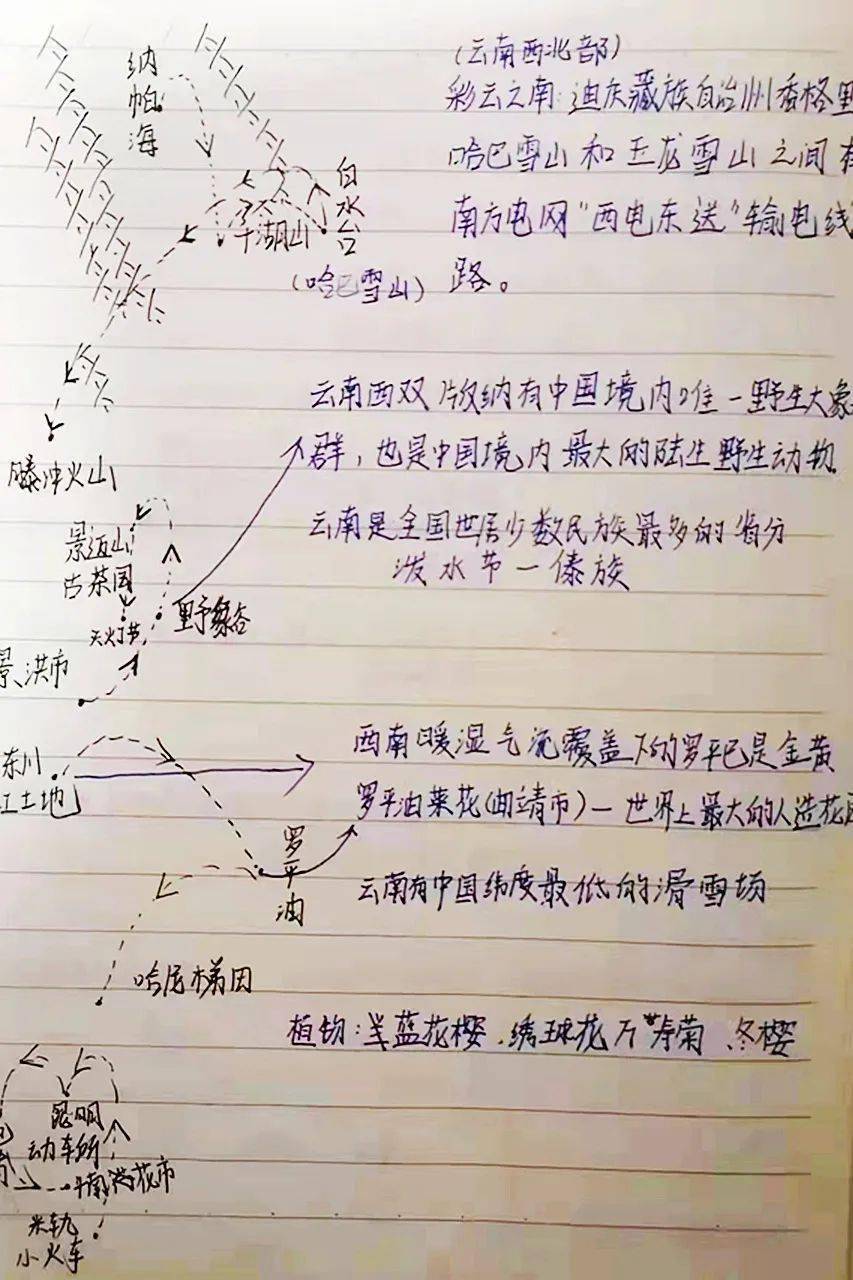 (云南西北部)
彩云之南:迪庆藏族自治州香格里
哈巴雪山和玉龙雪山之间有
南方电网“西电东送”输电线
路。
纳帕海
白水台
千湖山
(哈巴雪山)
腾冲火山
云南西双版纳有中国境内唯一野生大象
群，也是中国境内最大的陆生野生动物.
云南是全国世居少数民族最多的省分
泼水节一傣族
景迈山
古茶园
天灯节
野象谷
景洪市
东川
红土地
西南暖湿气流覆盖下的罗平已是金黄
罗平油菜花(曲靖市)一世界上最大的人造花园
罗平油
云南有中国纬度最低的滑雪场
哈尼梯田
植物:蓝花樱、绣球花 万寿菊、冬樱
昆明
动车所
斗南鲜花市
米轨
小火车